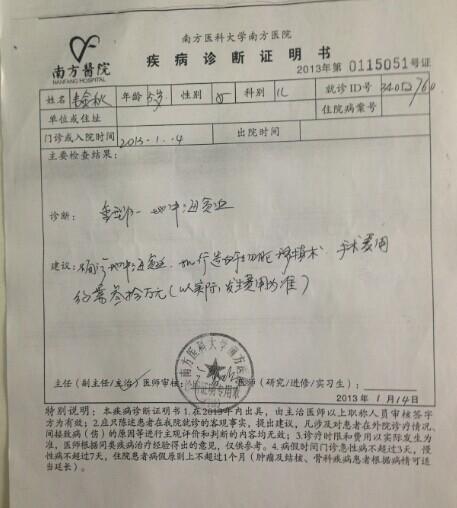 南方醫院
NANFANG HOSPITAL
南方医科大学南方医院
疾病诊断证明书
2013年第 0115051号证
姓名 年龄 岁 性别 女 科别 儿 就诊ID号
单位或住址 住院病案号
门诊或入院时间 2013-1..4 出院时间
主要检查结果:
诊断: 重型β-地中海贫血
建议: 地中海贫血,现行造血干细胞移植术,手术费用
约需叁拾万元(以实际发生费用为准)
南方医科大学南方医院
诊断证明专用章
主任(副主任/主治)医师审核: 医师(研究/进修/实习生):
2013年 1月14日
特别说明:本疾病诊断证明书1.在2013年内出具,由主治医师以上职称人员审核签字
方为有效;2.应只陈述患者在我院就诊的客观事实,提出建议,凡涉及对患者在外院诊疗情况、
间接致病(伤)的原因等进行主观评价和判断的内容均无效;3.诊疗时限和费用以实际发生为
准,医师根据同类疾病治疗经验得出的意见,仅供参考。4.病假时间门诊急性病不超过3天,慢
性病不超过7天,住院患者病假原则上不超过1个月(肿瘤及结核、骨科疾病患者根据病情可适
当延长)。